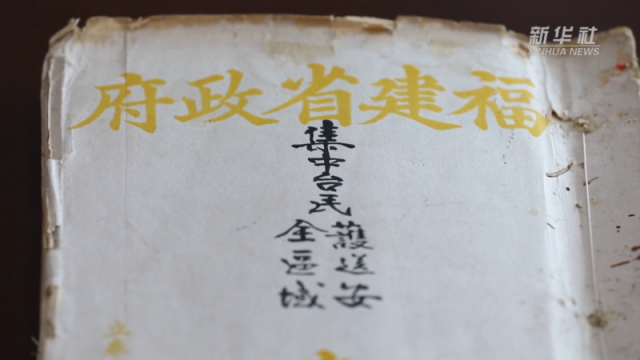 新华社
XINHUA NEWS
福建省政府
集中台民
護送安
全區域